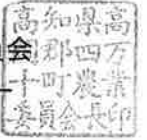 会
高知県高
岡郡四万
十町農業
委員会長印